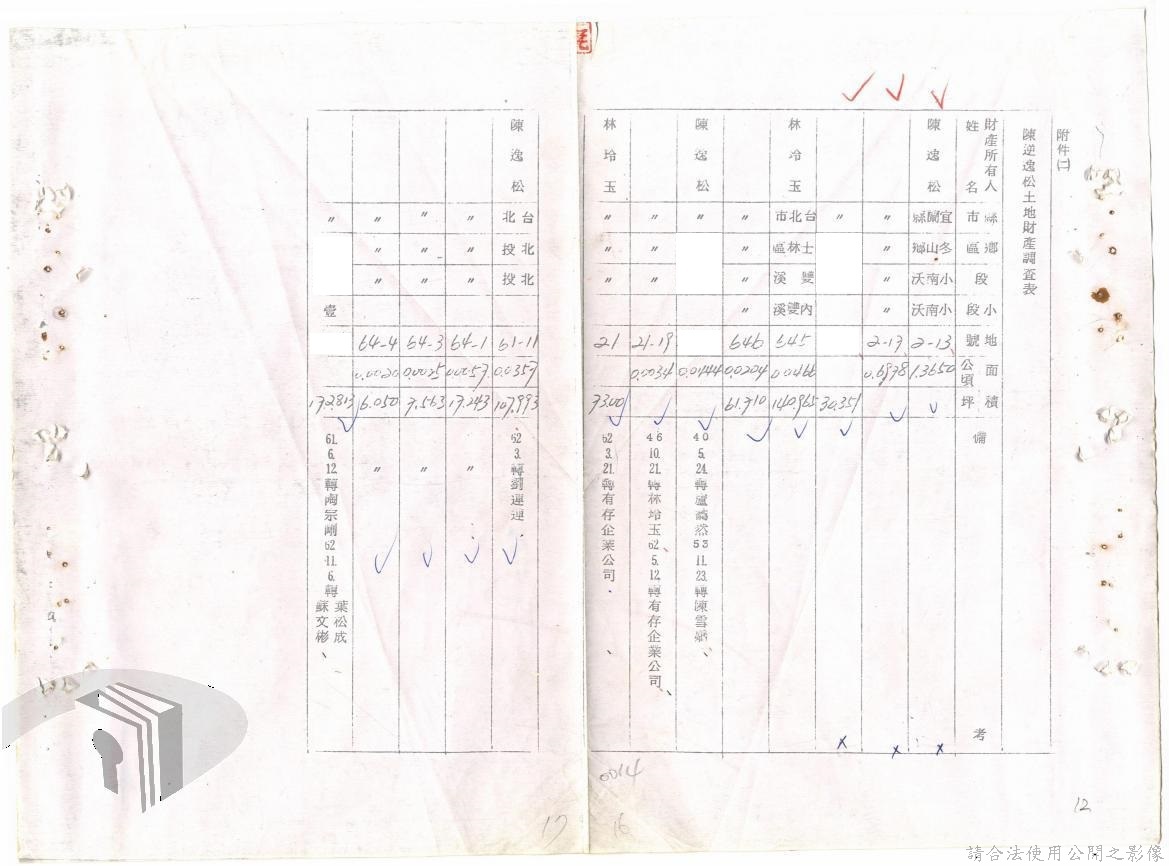 附件(二)
陳逆逸松土地財產調查表
財產所有人姓名 縣市 鄉區 段 小段 地號 面積 公頃 坪 備考
陳逸松 宜蘭縣 冬山鄉 小南沃 小南沃 2-13 1.3650
〃 〃 〃 〃 2-17 0.6978
〃 30.351
林冷玉 台北市 士林區 雙溪 內雙溪 645 0.0466 140.965
〃 〃 〃 〃 646 0.0204 61.710
陳逸松 〃 0.0144 40.5.24.轉盧 然53.11.23.轉陳雪
〃 〃 〃 21-19 0.0034 46.10.21.轉林玲玉62.5.12.轉有存企業公司
林玲玉 〃 〃 〃 21 73.00 62.3.21.轉有存企業公司
陳逸松 台北 北投 北投 61-11 0.0357 107.993 62.3.轉劉運連
〃 〃 〃 64-1 0.0057 17.243 〃
〃 〃 〃 64-3 0.0025 7.563 〃
〃 〃 〃 64-4 0.0020 6.050 〃
〃 壹 172.813 61.6.12.轉陶宗剛62.11.6.轉葉松成蘇文彬
0014
17
16
12
請合法使用公開之影像